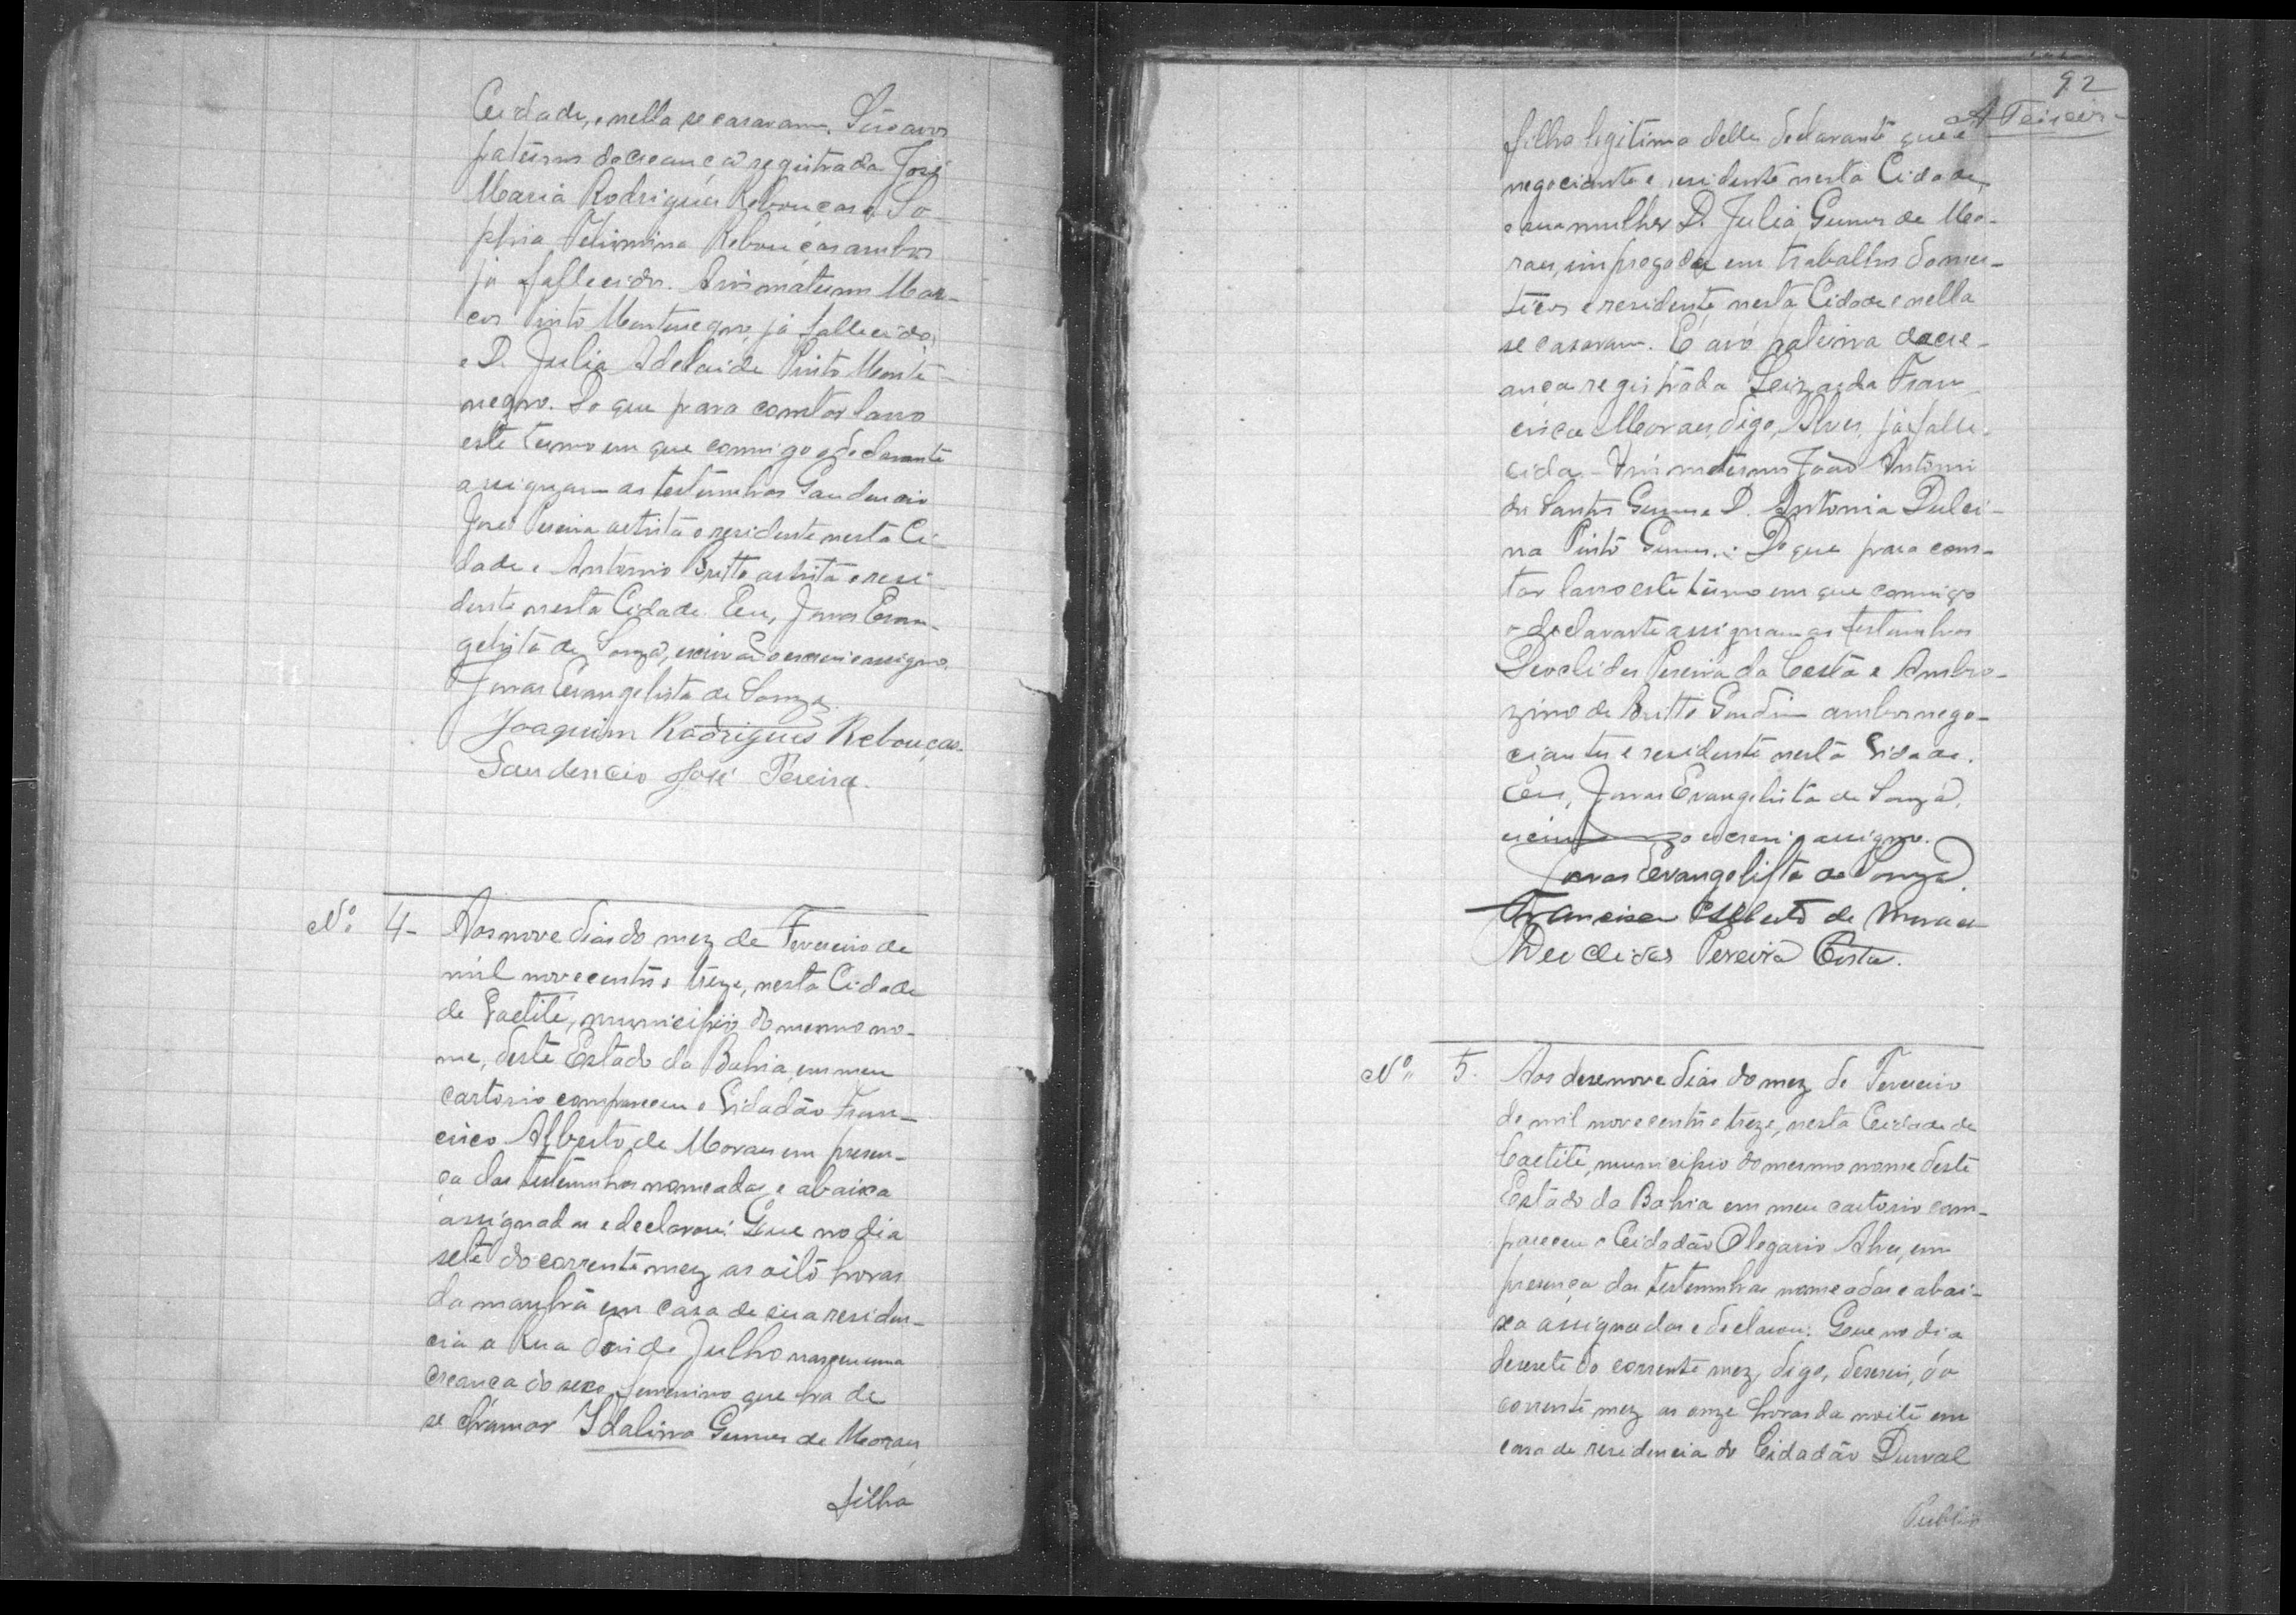 Cidade, e nella se casaram. São avos
paternos da creança registrada José
Maria Rodrigues Rebouças e So-
phia Rebouças ambos
já fallecidos. Avós maternos Mar-
cos Pinto Montenegro, já fallecido,
e D. Julia Adelaide Pinto Monte-
negro. Do que para constar lavro
este termo em que commigo o declarante
assignam as testemunhas Gaudencio
José Pereira artista e residente nesta Ci-
dade e Antonio Britto artista e resi-
dente nesta Cidade. Eu, Jonas Evan-
gelista de Souza, escrivão escrevi e assigno.
Jonas Evangelista de Souza.
Joaquim Rodrigues Rebouças.
Gaudencio José Pereira.
Nº 4- Aos nove dias do mez de Fevereiro de
mil novecentos e treze, nesta Cidade
de Caetité, municipio do mesmo no-
me, deste Estado da Bahia, em meu
cartorio compareceu o Cidadão Fran-
cisco Alberto de Moraes em presen-
ça das testemunhas nomeadas e abaixo
assignadas e declarou: Que no dia
sete do corrente mez as oito horas
da manhã em casa de sua residen-
cia a Rua Dois de Julho nasceu uma
creança do sexo femenino que ha de
se chamar Idalina Gumes de Moraes,
filha
92
A Teixeira
filha legitima delle declarante que é
negociante e residente nesta Cidade,
e sua mulher D. Julia Gumes de Mo-
raes, empregada em trabalhos domes-
ticos e residente nesta Cidade e nella
se casaram. É avó paterna da cre-
ança registrada Fran-
cisca Moraes, digo, Alves, já falle-
cida. Avós maternos João Antonio
dos Santos Gumes e D. Antonia Dulci-
na Pinto Gumes. Do que para cons-
tar lavro este termo em que commigo
o declarante assignam as testemunhas
Deoclides Pereira da Costa e Ambro-
zino de Britto Gondim ambos nego-
ciantes e residente nesta Cidade.
Eu, Jonas Evangelista de Souza,
escrivão o escrevi e assigno.
Jonas Evangelista de Souza.
Francisco Alberto de Moraes
Deoclides Pereira Costa.
Nº 5. Aos desenove dias do mez de Fevereiro
de mil novecentos e treze, nesta Cidade de
Caetité, municipio do mesmo nome deste
Estado da Bahia em meu cartorio com-
pareceu o Cidadão Olegario Alves, em
presença das testemunhas nomeadas e abai-
xo assignadas e declarou: Que no dia
desesete do corrente mez, digo, deseseis, do
corrente mez as onze horas da noite em
casa de residencia do Cidadão Durval
Publio